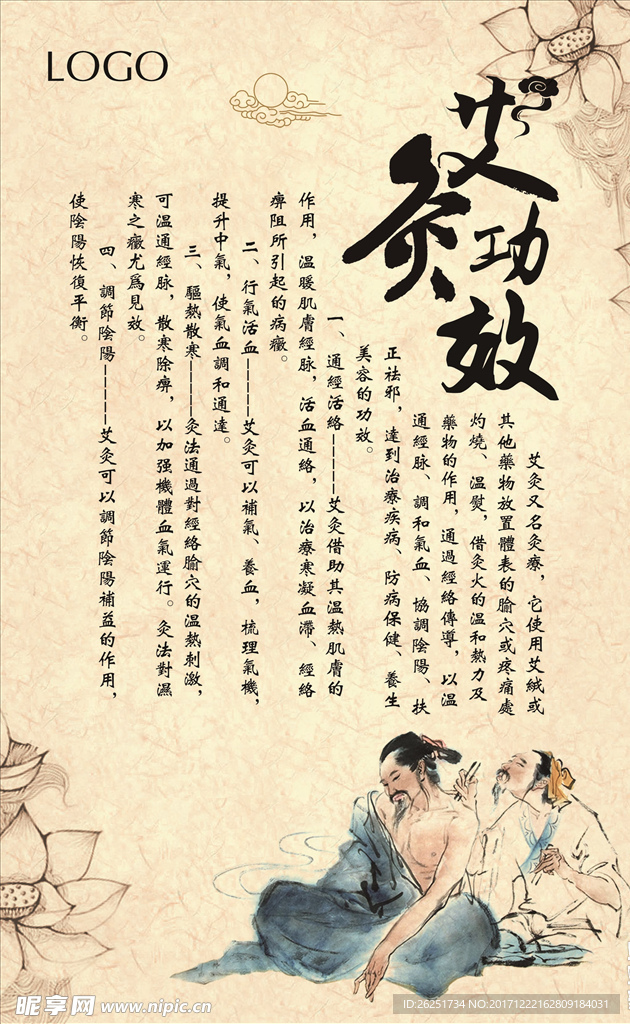 LOGO
艾灸功效
艾灸又名灸療，它使用艾絨或
其他藥物放置體表的腧穴或疼痛處
灼燒、温熨，借灸火的温和熱力及
藥物的作用，通過經絡傳導，以温
通經脉、調和氣血、協調陰陽、扶
正祛邪，達到治療疾病、防病保健、養生
美容的功效。
一、通經活絡-----艾灸借助其温熱肌膚的
作用，温暖肌膚經脉，活血通絡，以治療寒凝血滯、經絡
痹阻所引起的病癥。
二、行氣活血-----艾灸可以補氣、養血，梳理氣機，
提升中氣，使氣血調和通達。
三、驅熱散寒-----灸法通過對經絡腧穴的温熱刺激，
可温通經脉，散寒除痹，以加强機體血氣運行。灸法對濕
寒之癥尤爲見效。
四、調節陰陽-----艾灸可以調節陰陽補益的作用，
使陰陽恢復平衡。
昵享网 www.nipic.cn
ID:26251734 NO:20171222162809184031